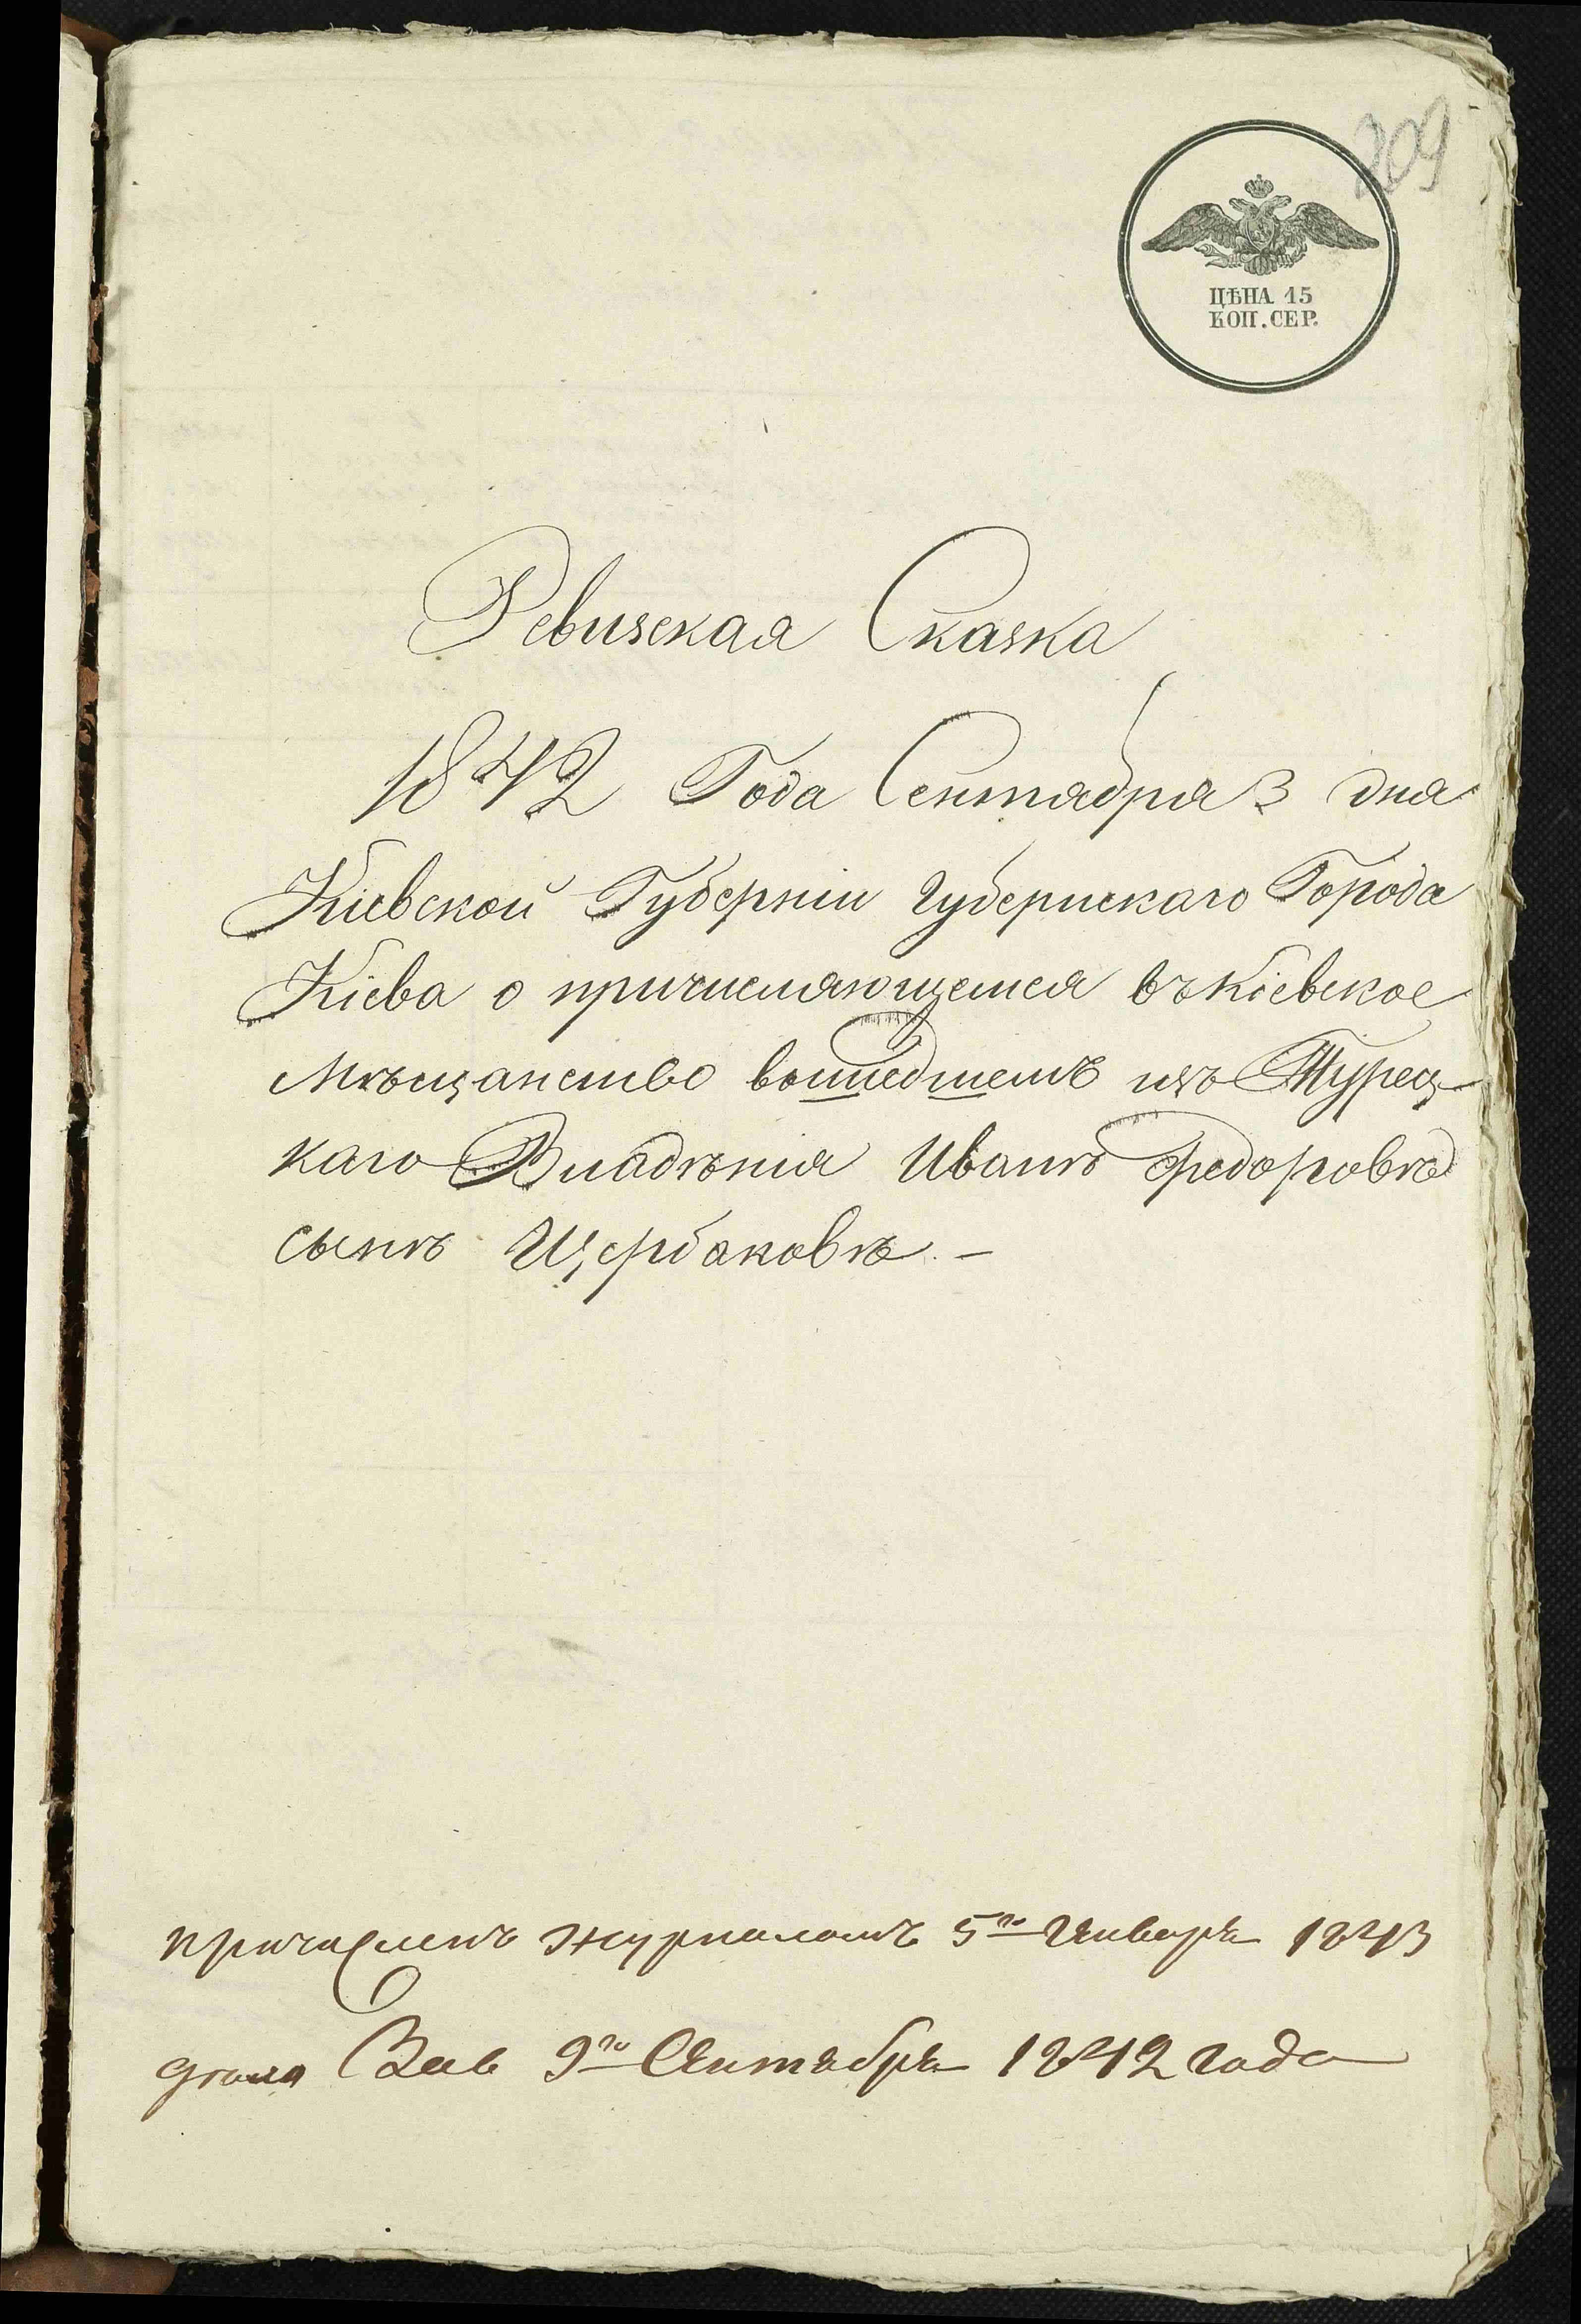 209
ЦѢНА 15
КОП. СЕР.
Ревизская Сказка
1842 Года Сентября 3 дня
Кіевской Губерніи Губернскаго Города
Кіева о причисляющемся въ Кіевское
Мѣщанство вошедшемъ изъ Турец-
каго Владѣнія Иванъ Федоровъ
сынъ Щербаковъ. –
причисленъ журналомъ 5го Января 1843
9го Сентября 1842 года